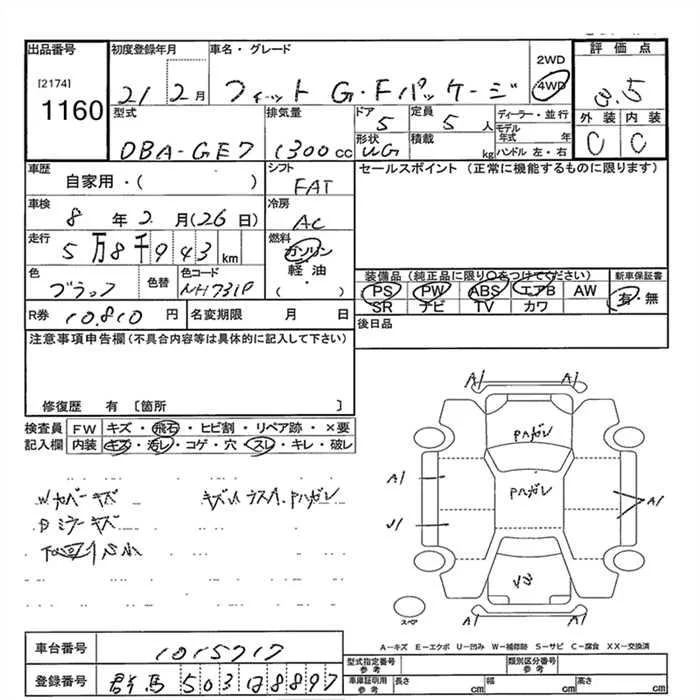 出品番号 初度登録年月 車名・グレード 2WD 評価点
[2174] 21 2月 フィット G・Fパッケージ 4WD 3.5
1160 型式 排気量 ドア 定員 ディーラー・並行 外装 内装
DBA-GE7 1300cc 5 5人 モデル年式 年 C C
形状 UG 積載 kg ハンドル 左・右
車歴 シフト セールスポイント (正常に機能するものに限ります)
自家用・( ) FAT
車検 冷房
8年2月(26日) AC
走行 燃料
5万8千943km ガソリン
軽油
( ・ )
色 色替 色コード 装備品 (純正品に限り○をつけてください) 新車保証書
ブラック NH731P PS PW ABS エアB AW 有・無
SR ナビ TV カワ
R券 10,810円 名変期限 月 日 後日品
注意事項申告欄(不具合内容等は具体的に記入して下さい)
修復歴 有 〔箇所 〕
検査員 FW キズ・飛石・ヒビ割・リペア跡・×要
記入欄 内装 キズ・汚レ・コゲ・穴・スレ・キレ・破レ
A1 A1
Pハガレ
Pハガレ
A1 A1
U1
Wカバーキズ
ミラーキズ
スペア
A-キズ E-エクボ U-凹み W-補修跡 S-サビ C-腐食 XX-交換済
A1 A1
車台番号 1015717
型式指定番号 参考 類別区分番号 参考
登録番号 群馬 503 8897
車庫証明用 参考 長さ cm 幅 cm 高さ cm